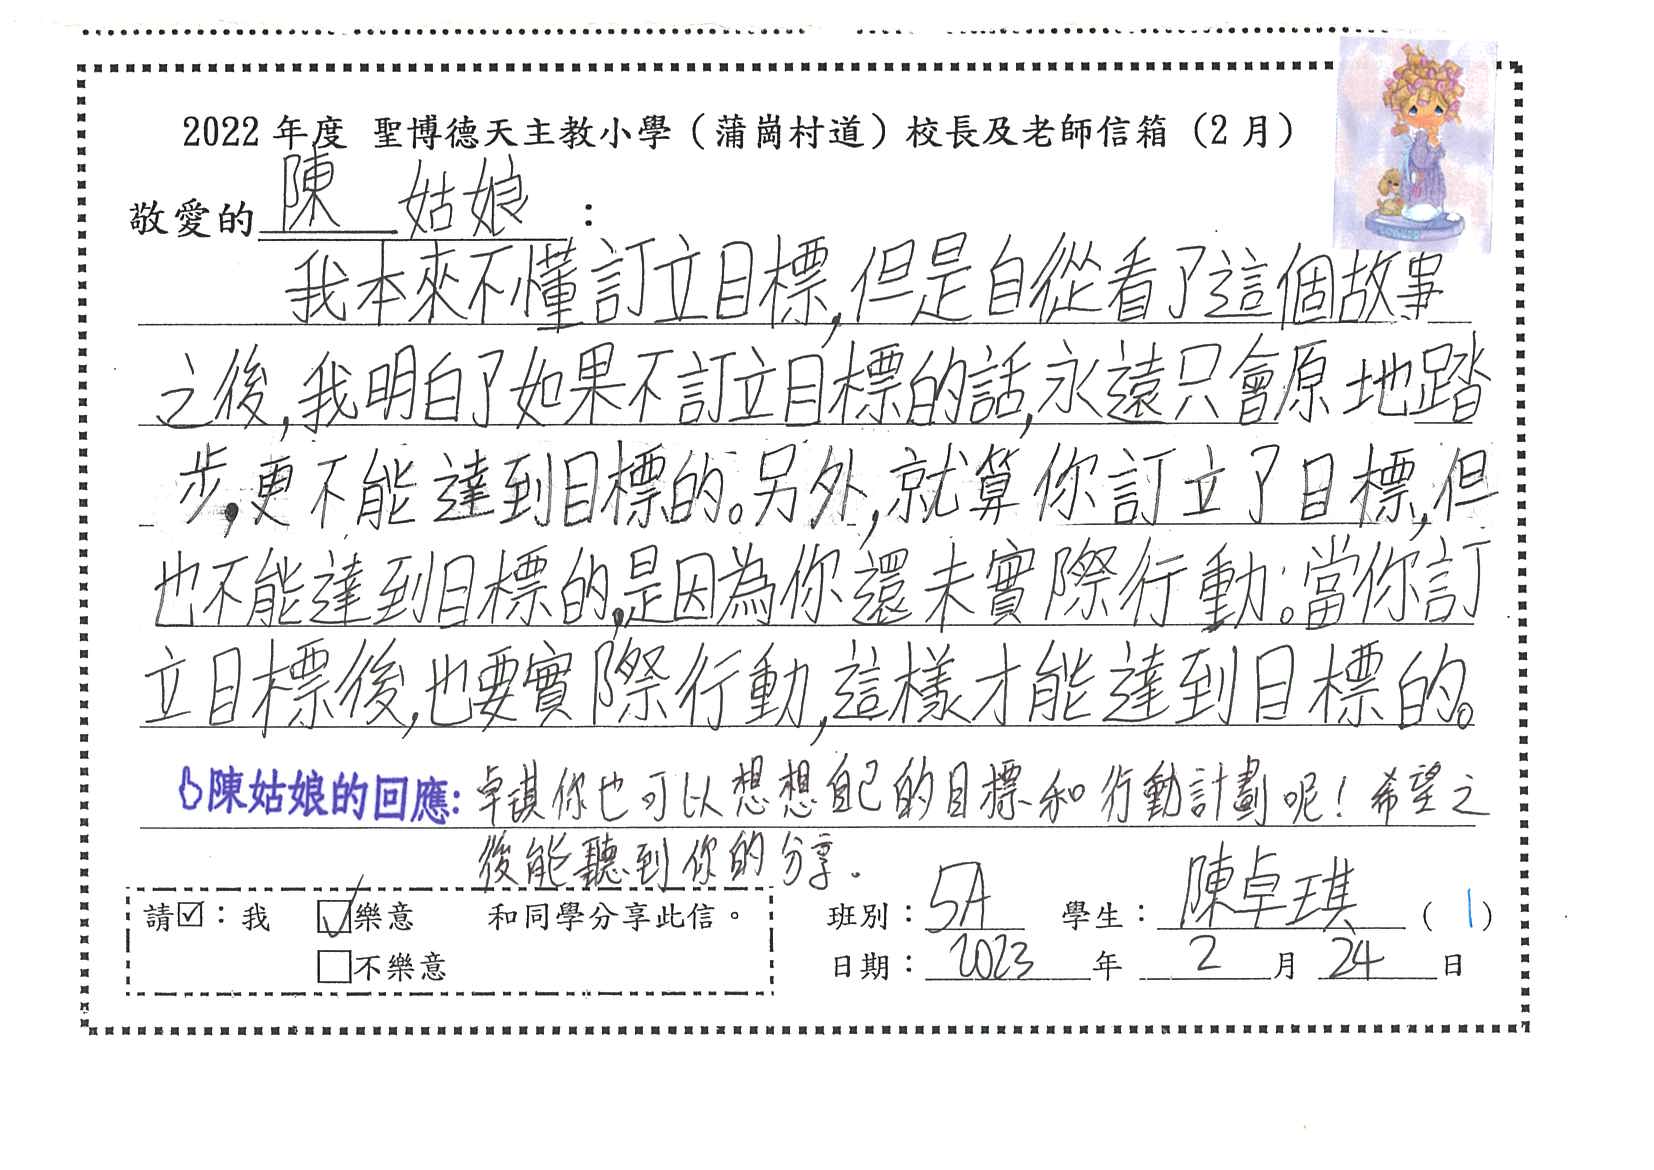 2022 年度 聖博德天主教小學（蒲崗村道）校長及老師信箱（2 月）
敬愛的 陳 姑娘 ：
我本來不懂訂立目標,但是自從看了這個故事
之後,我明白了如果不訂立目標的話,永遠只會原地踏
步,更不能達到目標的。另外,就算你訂立了目標,但
也不能達到目標的,是因為你還未實際行動。當你訂
立目標後,也要實際行動,這樣才能達到目標的。
陳姑娘的回應: 卓琪你也可以想想自己的目標和行動計劃呢！希望之
後能聽到你的分享.
請☑：我 ☑樂意 和同學分享此信。 班別：5A 學生：陳卓琪（1）
□不樂意 日期：2023 年 2 月 24 日